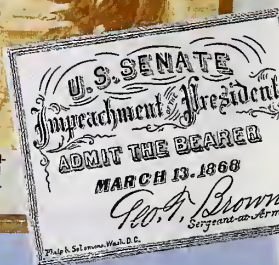 U.S. SENATE
Impeachment of the President
ADMIT THE BEARER
MARCH 13. 1868
Geo. T. Brown
Sergeant-at-Arms
Philp & Solomons, Wash. D.C.